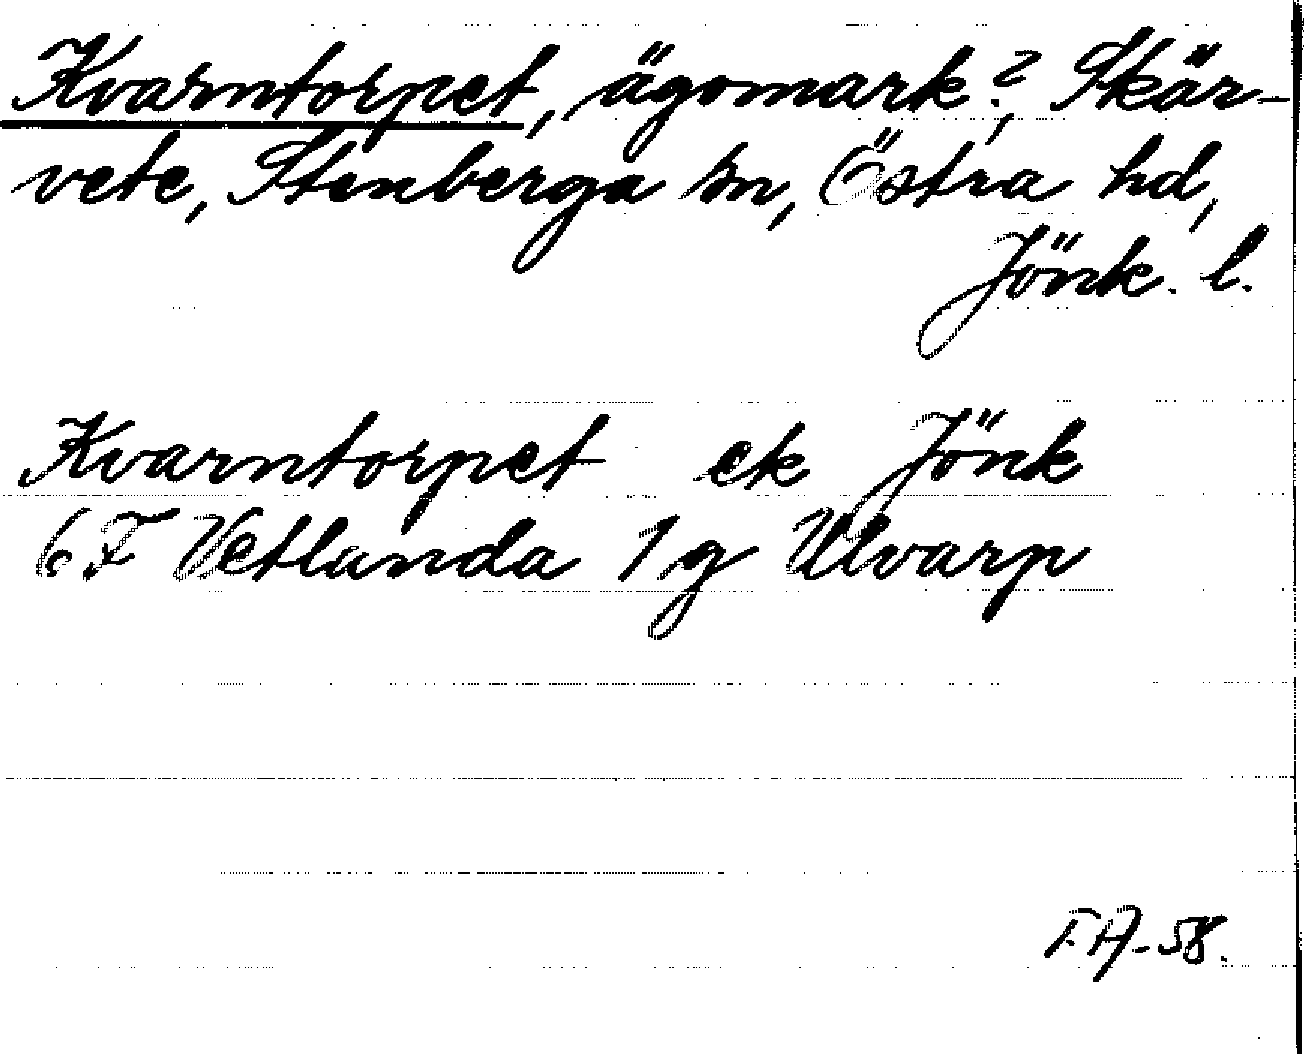 Kvarntorpet, ägomark?, Skär-
vete, Stenberga sn, Östra hd,
Jönk. l.
Kvarntorpet ek Jönk
6F Vetlanda 1g Ulvarp
FA-58.